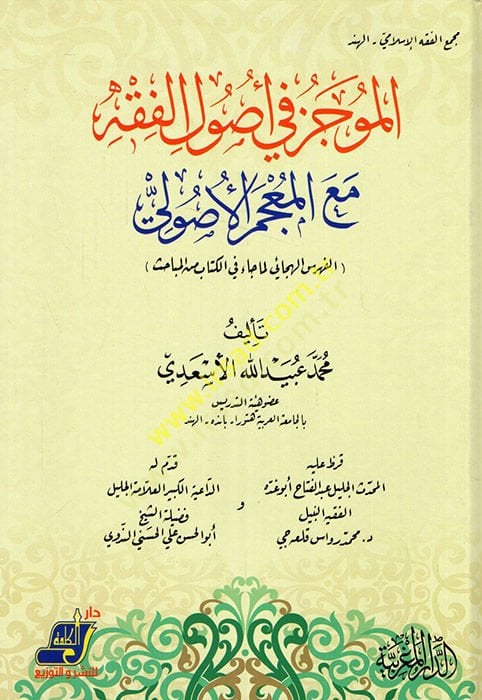 مجمع الفقه الإسلامي - الهند
الموجز في أصول الفقه
مع المعجم الأصولي
(الفهرس الهجائي لما جاء في الكتاب من المباحث)
تأليف
محمد عبيد الله الأسعدي
عضو هيئة التدريس
بالجامعة العربية هتورا - بانده - الهند
قرظ عليه
المحدث الجليل عبد الفتاح أبو غدة
الفقيه النبيل
د. محمد رواس قلعرجي
و
قدم له
الداعية الكبير العلامة الجليل
فضيلة الشيخ
أبو الحسن علي الحسني الندوي
دار
الكلمة
للنشر والتوزيع
الدار المغربية